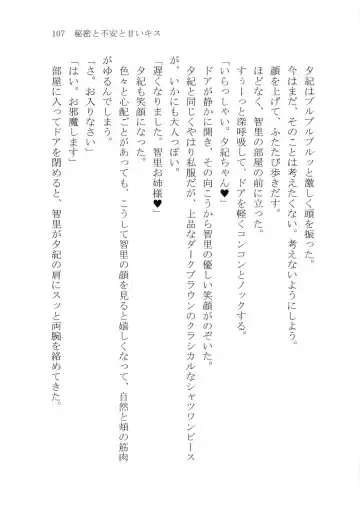 107　秘密と不安と甘いキス
夕紀はブルブルブルッと激しく頭を振った。
今はまだ、そのことは考えたくない。考えないようにしよう。
顔を上げて、ふたたび歩きだす。
ほどなく、智里の部屋の前に立った。
すぅーっと深呼吸して、ドアを軽くコンコンとノックする。
「いらっしゃい。夕紀ちゃん♥」
ドアが静かに開き、その向こうから智里の優しい笑顔がのぞいた。
夕紀と同じくやはり私服だが、上品なダークブラウンのクラシカルなシャツワンピース
が、いかにも大人っぽい。
「遅くなりました。智里お姉様♥」
夕紀も笑顔になった。
色々と心配ごとがあっても、こうして智里の顔を見ると嬉しくなって、自然と頬の筋肉
がゆるんでしまう。
「さ。お入りなさい」
「はい。お邪魔します」
部屋に入ってドアを閉めると、智里が夕紀の肩にスッと両腕を絡めてきた。